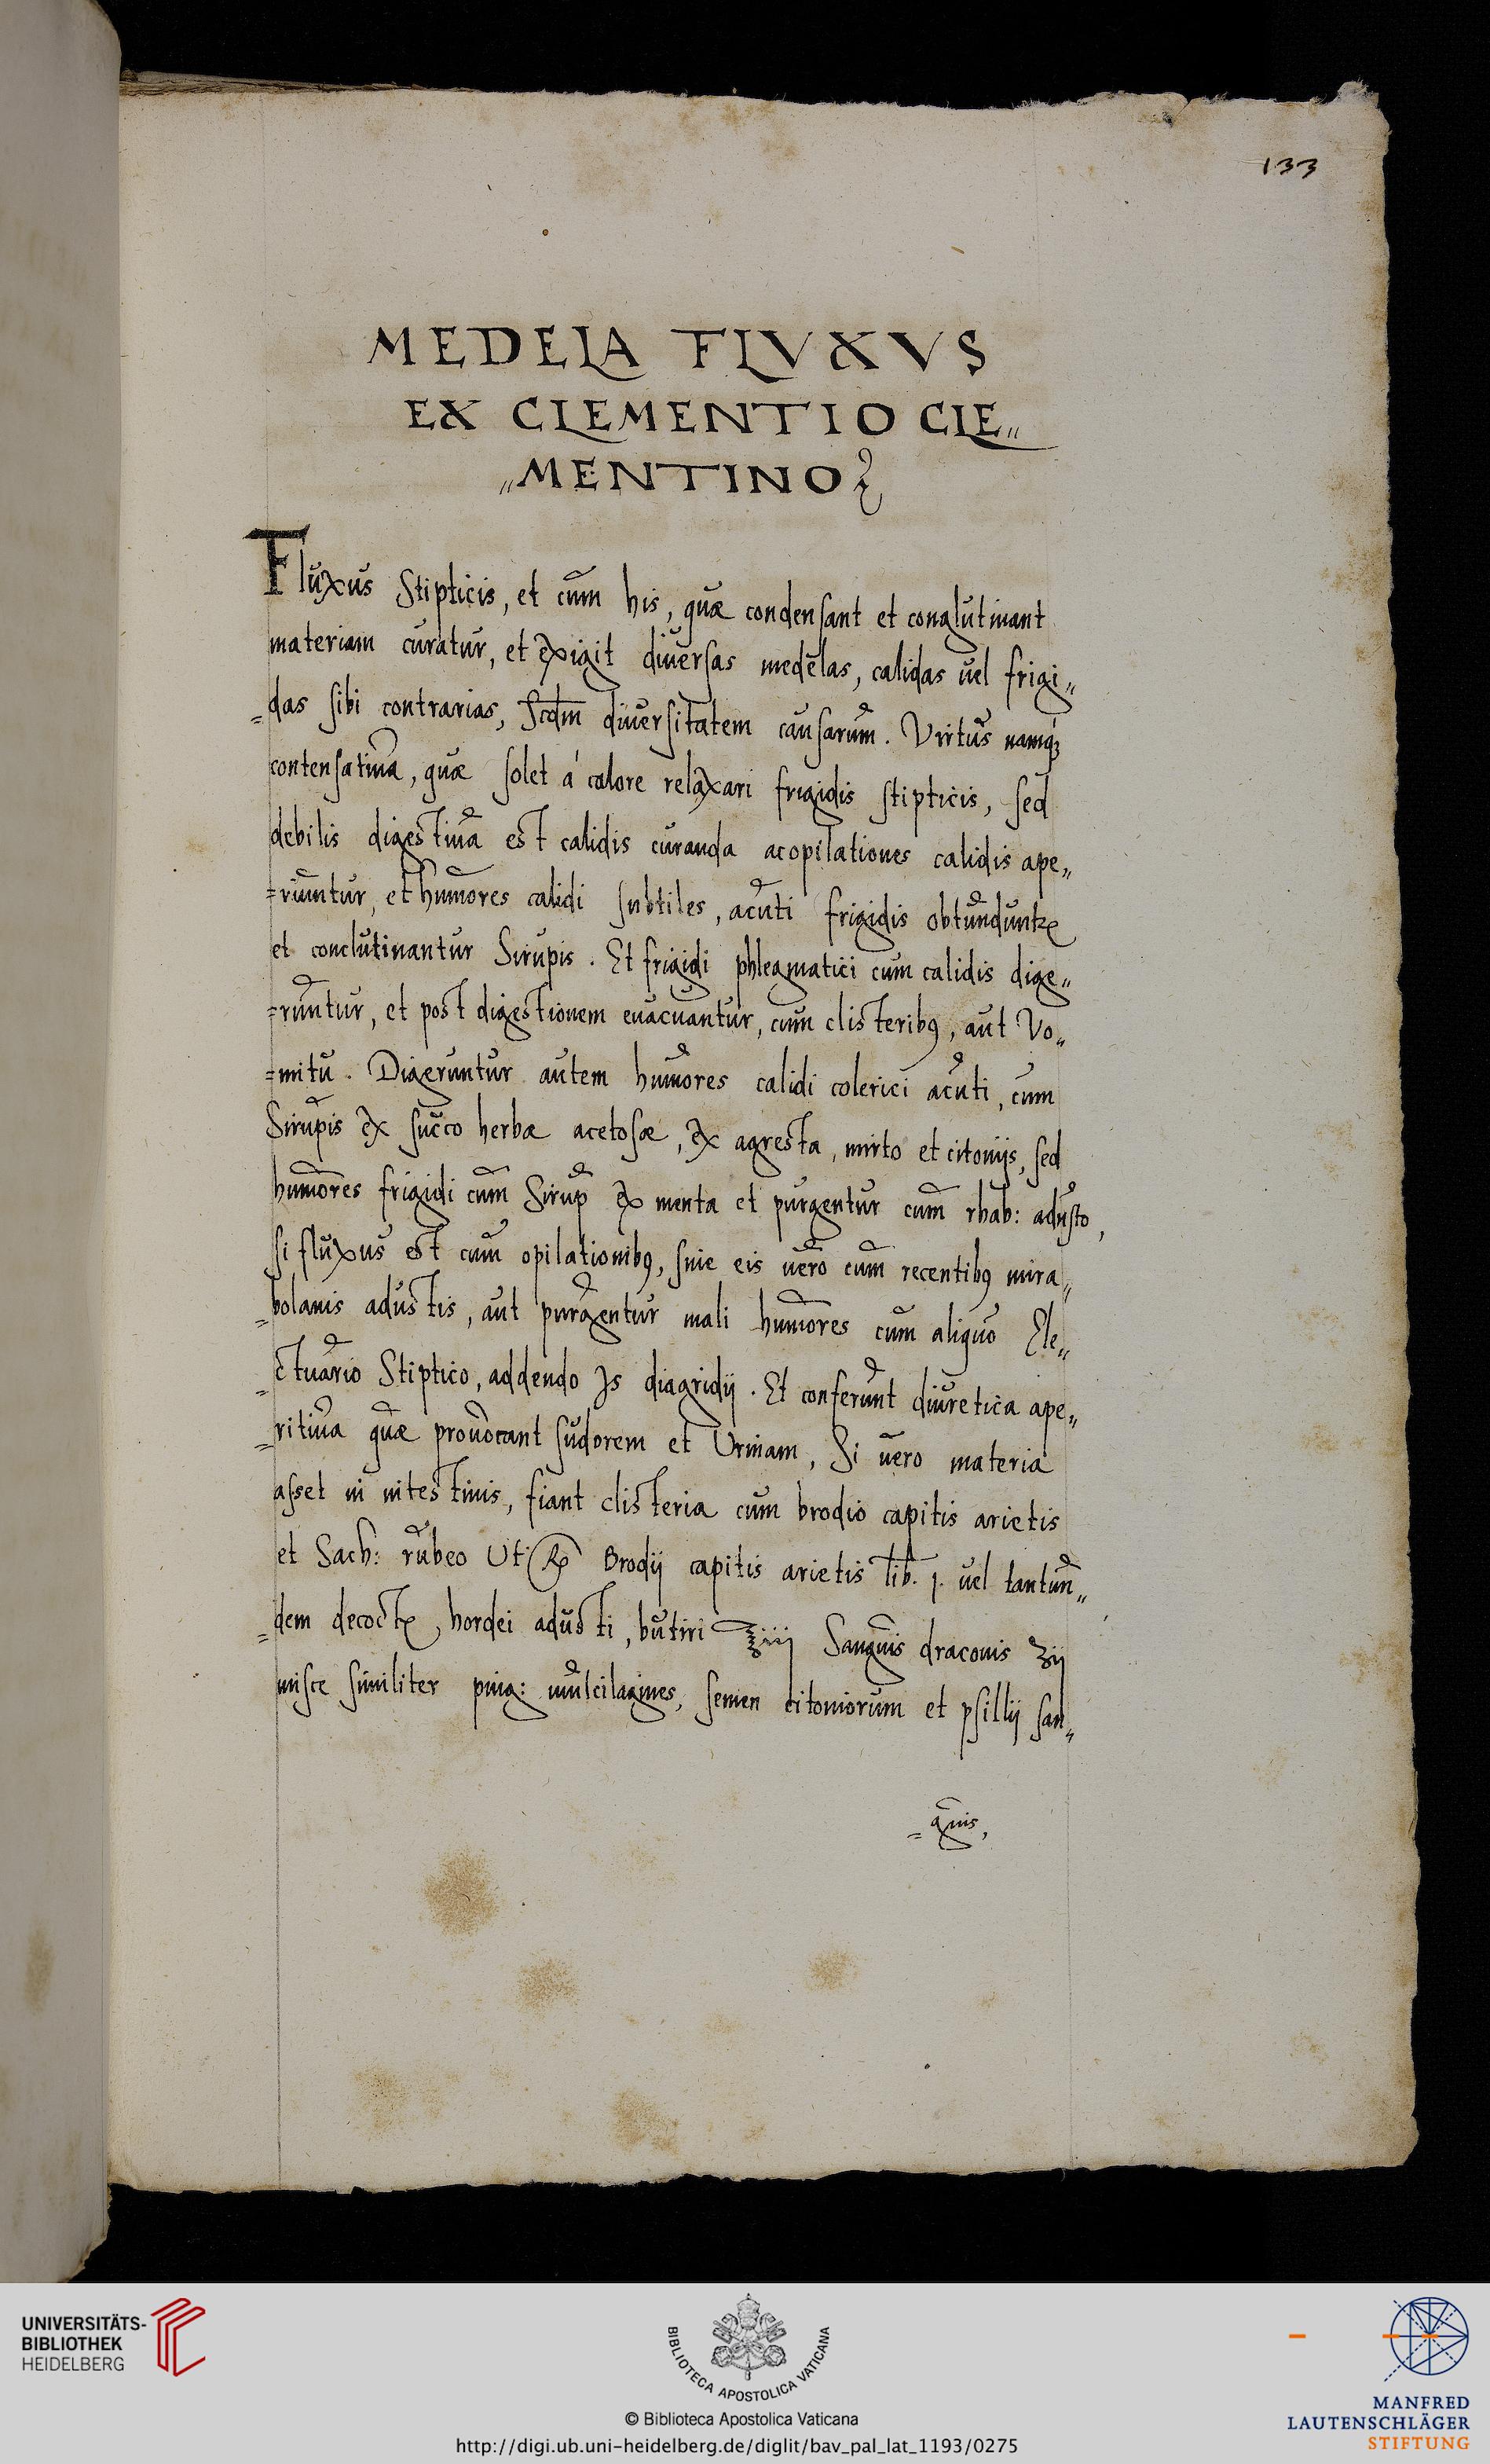 133
MEDELA FLVXVS
EX CLEMENTIO CLE„
„MENTINO
Fluxus Stipticis, et cum his, quæ condensant et conglutinant
materiam curatur, et exigit diversas medelas, calidas vel frigi„
=das sibi contrarias, Scdm diversitatem causarum. Virtus namq3
contensativa, quæ solet á calore relaxari frigidis stipticis, sed
debilis digestiva est calidis curanda acopilationes calidis ape„
=riuntur, et humores calidi subtiles, acuti frigidis obtundunt
et conclutinantur Sirupis. Et frigidi phlegmatici cum calidis dige„
=runtur, et post digestionem evacuantur, cum clisteribꝯ, aut Vo„
=mitu. Digeruntur autem humores calidi colerici acuti, cum
Sirupis ex succo herbæ acetosæ, ex agresta, mirto et citonijs, sed
humores frigidi cum Sirup ex menta et purgentur cum rhab: adusto,
si fluxus est cum opilationibꝯ, sine eis vero cum recentibꝯ mira„
=bolanis adustis, aut purgentur mali humores cum aliquo Ele„
=ctuario Stiptico, addendo Is diagridij. Et conferunt diuretica ape„
=ritiva quæ provocant sudorem et Urinam, Si vero materia
asset in intestinis, fiant clisteria cum brodio capitis arietis
et Sach: rubeo Uti ℞ Brodij capitis arietis lib. j. vel tantun„
=dem decoct, hordei adusti, butiri ℥iij Sanguis draconis ʒij
misce similiter ping: mulcilagines, semen citoniorum et psillij san„
=guis,
UNIVERSITÄTS-
BIBLIOTHEK
HEIDELBERG
BIBLIOTECA APOSTOLICA VATICANA
© Biblioteca Apostolica Vaticana
http://digi.ub.uni-heidelberg.de/diglit/bav_pal_lat_1193/0275
MANFRED
LAUTENSCHLÄGER
STIFTUNG